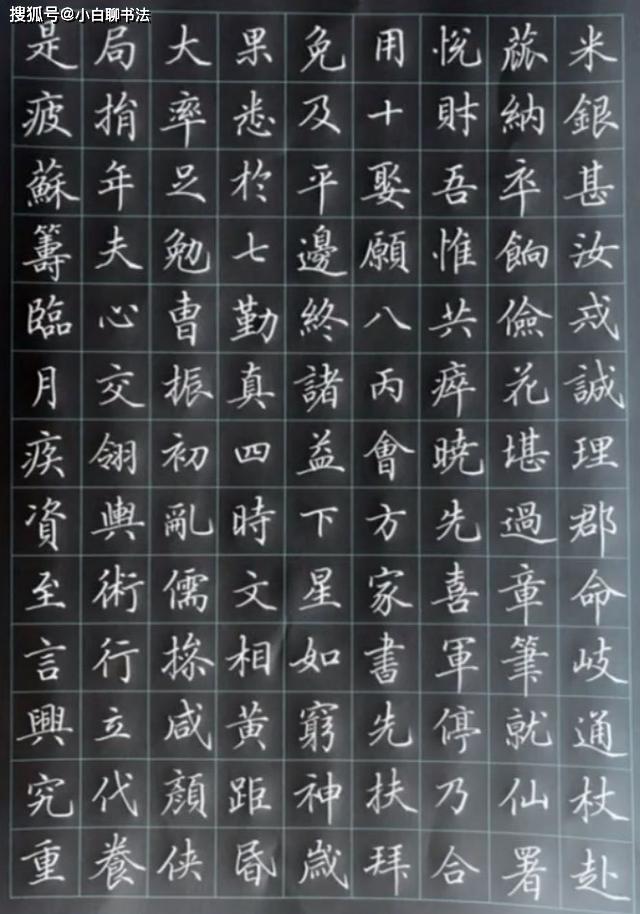 搜狐号@小白聊书法
是局大果免用悅蓏米
疲捐率悉及十財納銀
蘇年足於平娶吾卒甚
籌夫勉七邊願惟餉汝
臨心曹勤終八共儉戒
月交振真諸丙瘁花誠
疾翎初四益會曉堪理
資輿亂時下方先過郡
至術儒文星家喜章命
言行掾相如書軍筆岐
興立咸黃窮先停就通
究代顏距神扶乃仙杖
重養俠昏歲拜合署赴